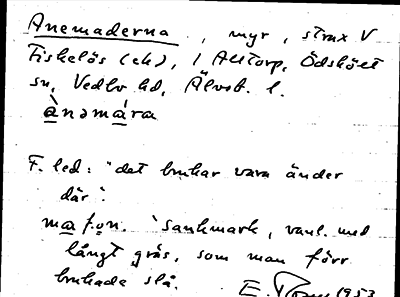 Anemaderna, myr, strax V
Fiskelös (ek), i Alltorp, Ödsköt
sn, Vedbo hd, Älvsb. l.
ànəmára
F. led: "det brukar vara änder
där".
"sankmark, vanl. med
långt gräs, som man förr
brukade slå.
E. 1953